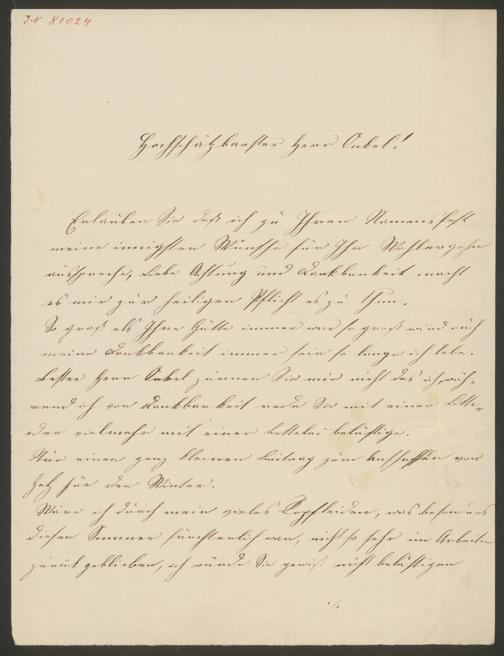 IN 81024
Hochschätzbarster Herr Onkel!
Erlauben Sie daß ich zu Ihren Namensfest
meine innigsten Wünsche für Ihr Wohlergehn
ausspreche, Liebe Achtung und Dankbarkeit macht
es mir zur heiligen Pflicht es zu thun.
So groß als Ihre Güte immer war so groß wird auch
meine Dankbarkeit immer sein so lange ich lebe.
Bester Herr Onkel zürnen Sie mir nicht das ich, wäh-
rend ich von Dankbarkeit rede Sie mit einer Bitte,
oder vielmehr mit einer Bettelei belästige.
Nur einen ganz kleinen Beitrag zum Anschaffen von
Holz für den Winter.
Wäre ich durch mein vieles Kopfleiden, was besonders
diesen Sommer fürchterlich war, nicht so sehr im Arbeiten
zurück geblieben, ich würde Sie gewiß nicht belästigen
./.